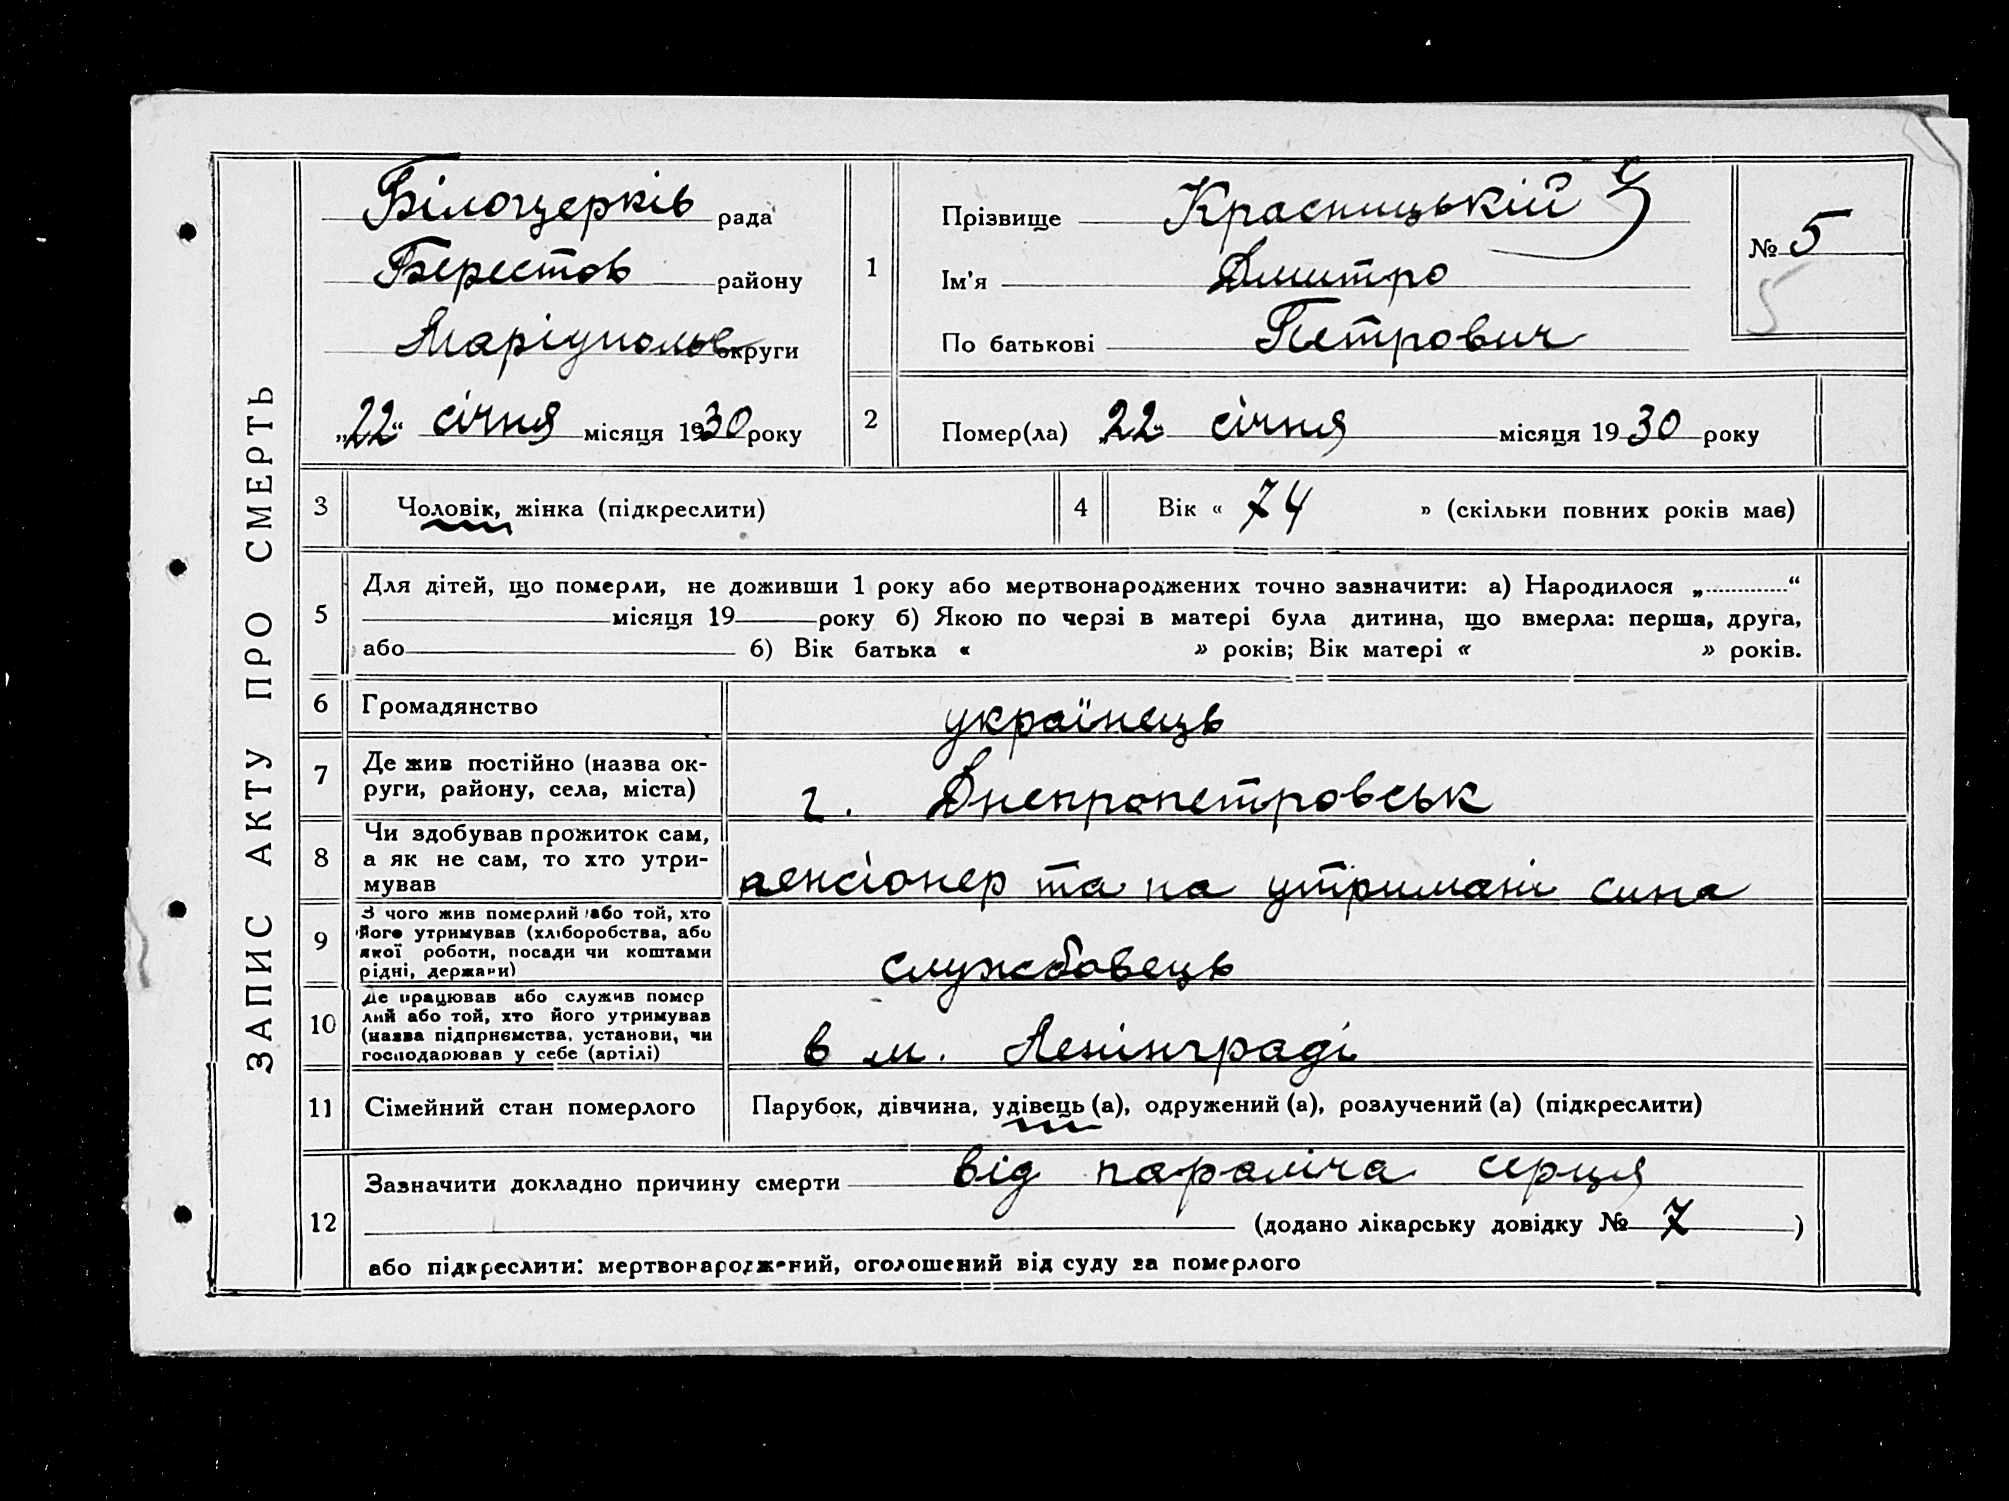 ЗАПИС АКТУ ПРО СМЕРТЬ
Білоцерків рада
Берестов району
Маріуполь округи
„22“ січня місяця 1930 року
1
Прізвище Красницькій
Ім'я Дмитро
По батькові Петрович
№ 5
5
2
Помер(ла) „22“ січня місяця 1930 року
3
Чоловік, жінка (підкреслити)
4
Вік « 74 » (скільки повних років має)
5
Для дітей, що померли, не доживши 1 року або мертвонароджених точно зазначити: а) Народилося „ “
місяця 19 року б) Якою по черзі в матері була дитина, що вмерла: перша, друга,
або б) Вік батька « » років; Вік матері « » років.
6
Громадянство
українець
7
Де жив постійно (назва ок-
руги, району, села, міста)
г. Днепропетровськ
8
Чи здобував прожиток сам,
а як не сам, то хто утри-
мував
пенсіонер та на утримані сина
9
З чого жив померлий або той, хто
його утримував (хліборобства, або
якої роботи, посади чи коштами
рідні, держави)
службовець
10
Де працював або служив помер
лий або той, хто його утримував
(назва підприємства, установи, чи
господарював у себе (артілі)
в м. Ленінграді
11
Сімейний стан померлого
Парубок, дівчина, удівець (а), одружений (а), розлучений (а) (підкреслити)
12
Зазначити докладно причину смерти від параліча серця
(додано лікарську довідку № 7 )
або підкреслити: мертвонароджений, оголошений від суду за померлого